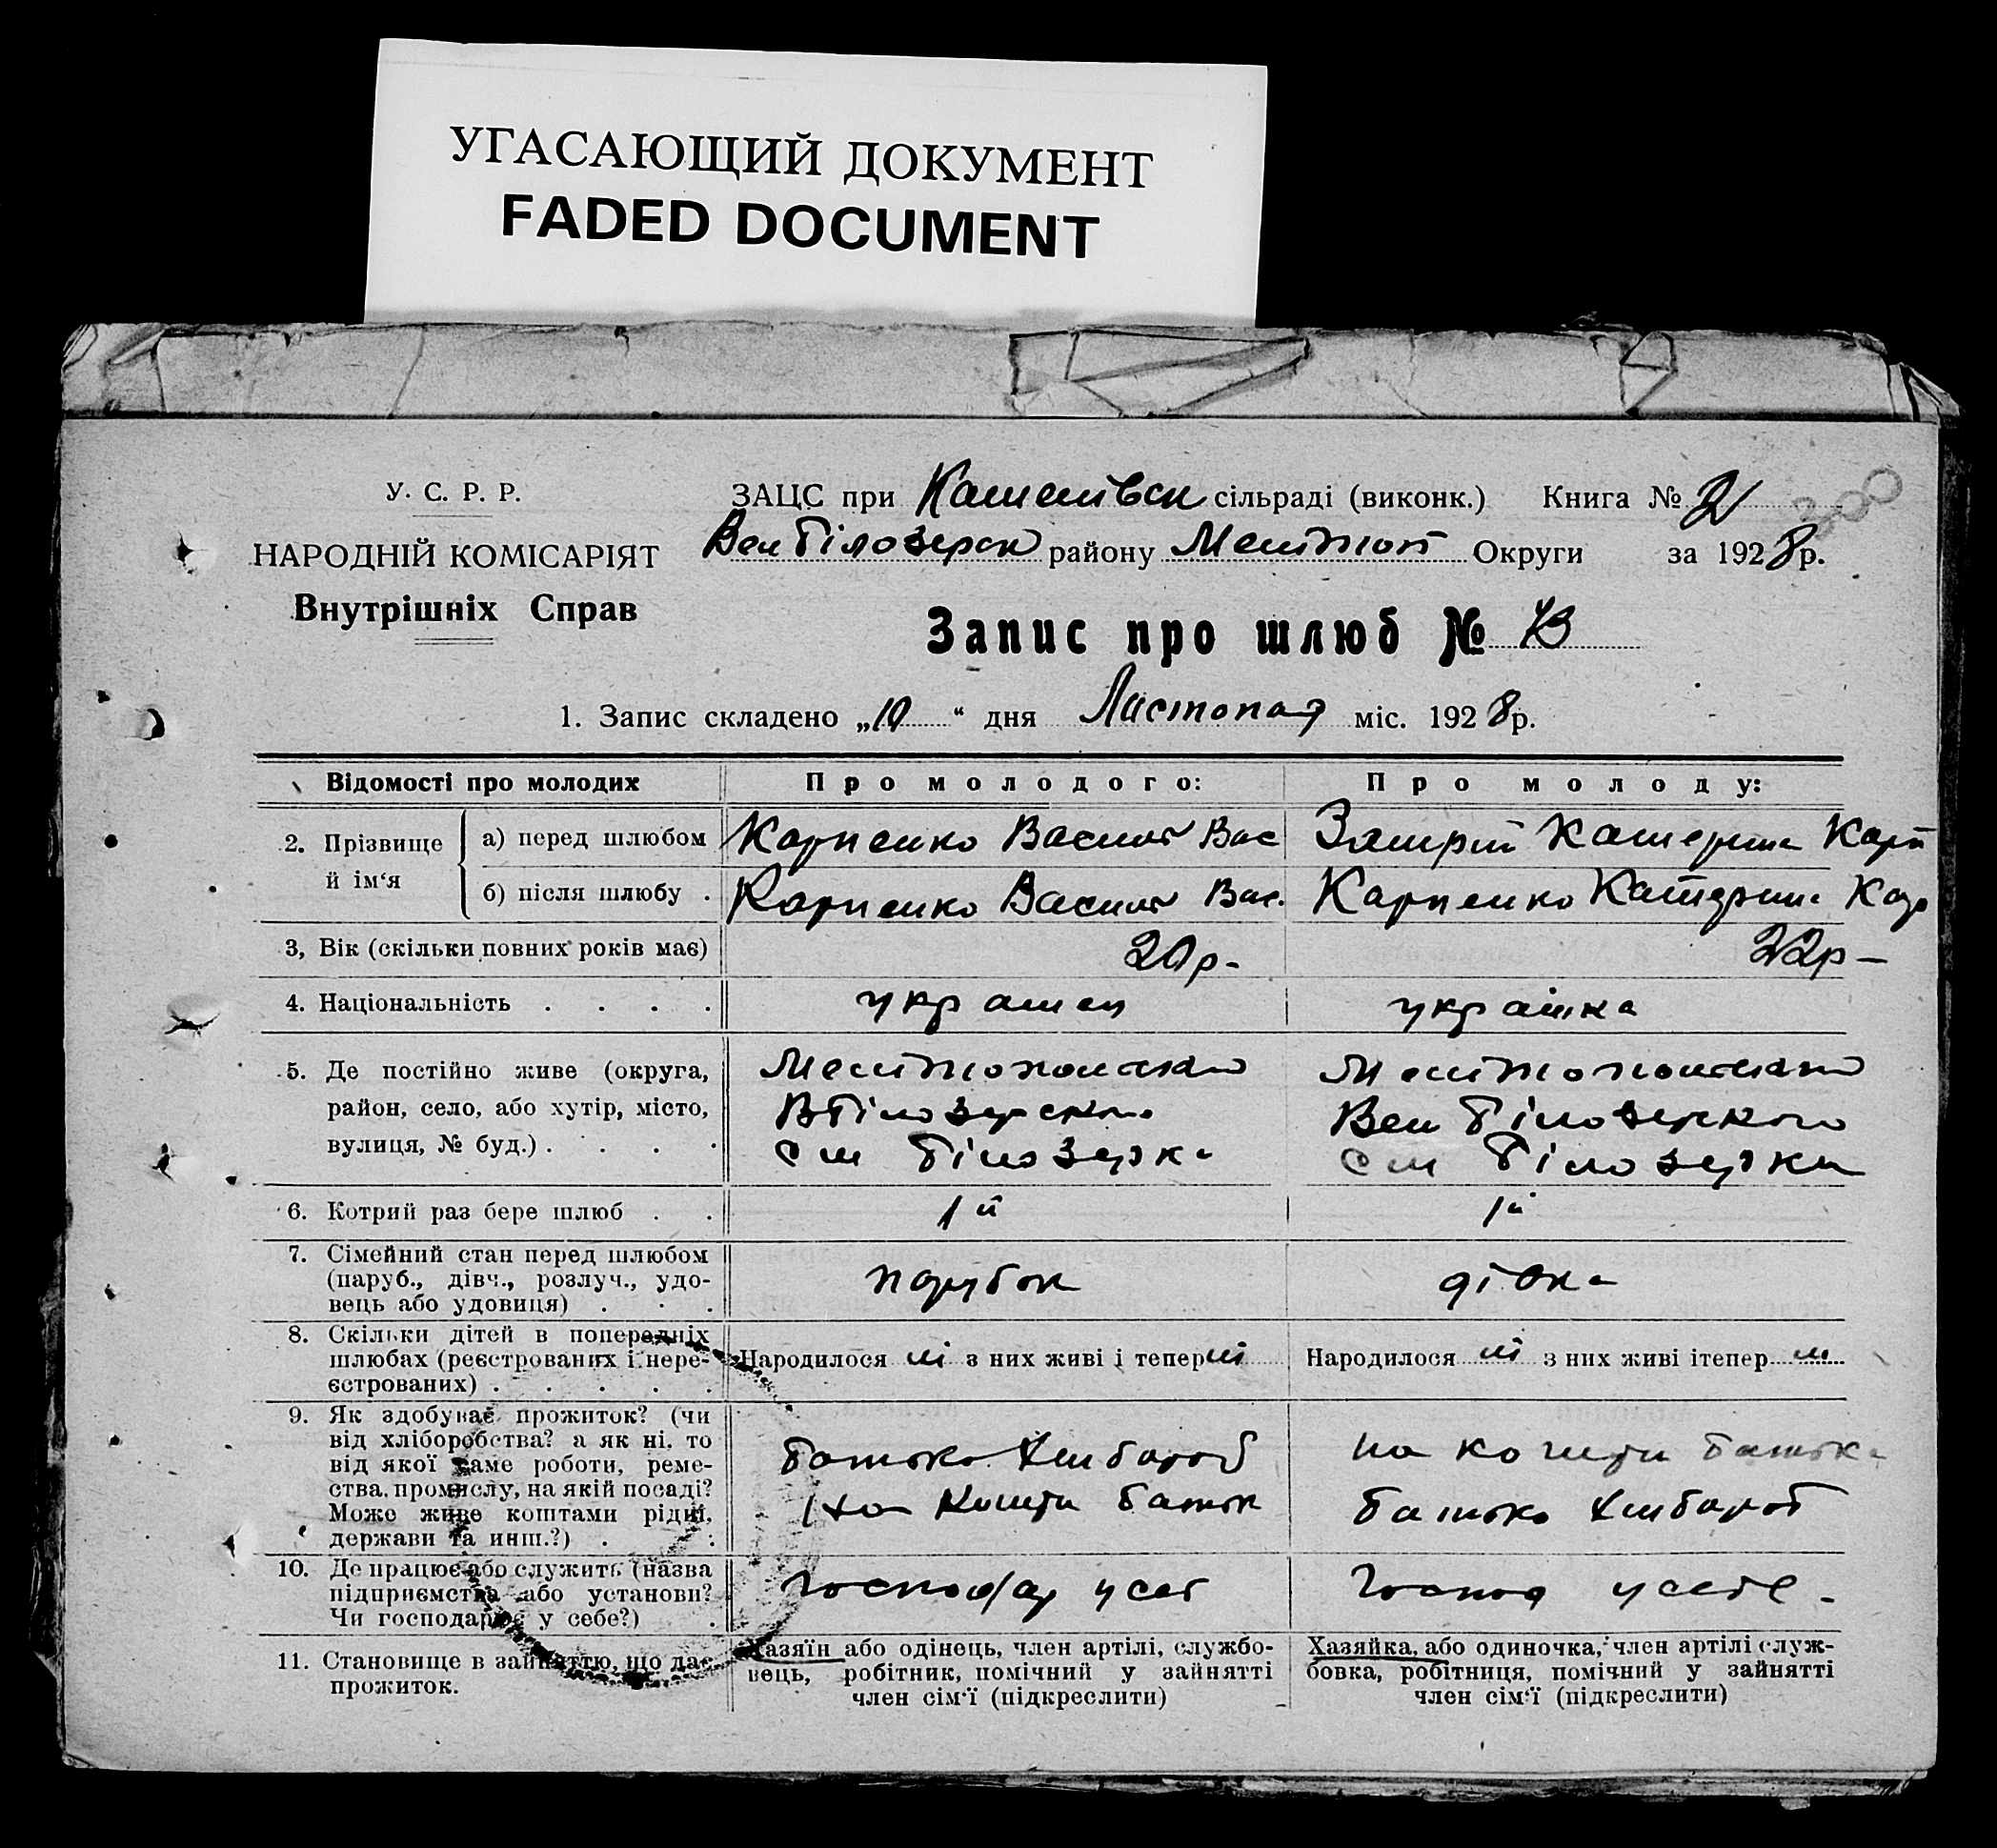 УГАСАЮЩИЙ ДОКУМЕНТ
FADED DOCUMENT
У. С. Р. Р.
НАРОДНІЙ КОМІСАРІЯТ
Внутрішніх Справ
ЗАЦС при сільраді (виконк.) Книга № 2
300
Вел Білозерськ району Мелітоп Округи за 1928 р.
Запис про шлюб №
1. Запис складено „10“ дня Листопад міс. 1928 р.
Відомості про молодих
Про молодого:
Про молоду:
2. Прізвище й ім‘я
а) перед шлюбом
Карпенко Василь Вас
Катерина Карп
б) після шлюбу .
Карпенко Василь Вас.
Карпенко Катерина Кар
3, Вік (скільки повних років має)
20 р-
22 р-
4. Національність . . . .
українец
українка
5. Де постійно живе (округа,
район, село, або хутір, місто,
вулиця, № буд.) . . . .
Мелітопольська
ВБілозерського
см Білозерка
Мелітопольська
Вел Білозерського
см Білозерки
6. Котрий раз бере шлюб . .
1й
1й
7. Сімейний стан перед шлюбом
(паруб., дівч., розлуч., удо-
вець або удовиця) . . .
парубок
дівка
8. Скільки дітей в попередніх
шлюбах (реєстрованих і нере-
єстрованих) . . . . .
Народилося ні з них живі і тепер ні
Народилося ні з них живі ітепер ні
9. Як здобуває прожиток? (чи
від хліборобства? а як ні, то
від якої саме роботи, реме-
ства, промислу, на якій посаді?
Може живе коштами рідні,
держави та инш.?) . .
батько хлібороб
на кошти батьк
на кошти батька
батько хлібороб
10. Де працює або служить (назва
підприємства або установи?
Чи господарює у себе?) .
господар у себ
господ у себе -
11. Становище в зайняттю, що дає
прожиток.
Хазяїн або одінець, член артілі, службо-
вець, робітник, помічний у зайнятті
член сім‘ї (підкреслити)
Хазяйка, або одиночка, член артілі служ-
бовка, робітниця, помічний у зайнятті
член сім‘ї (підкреслити)